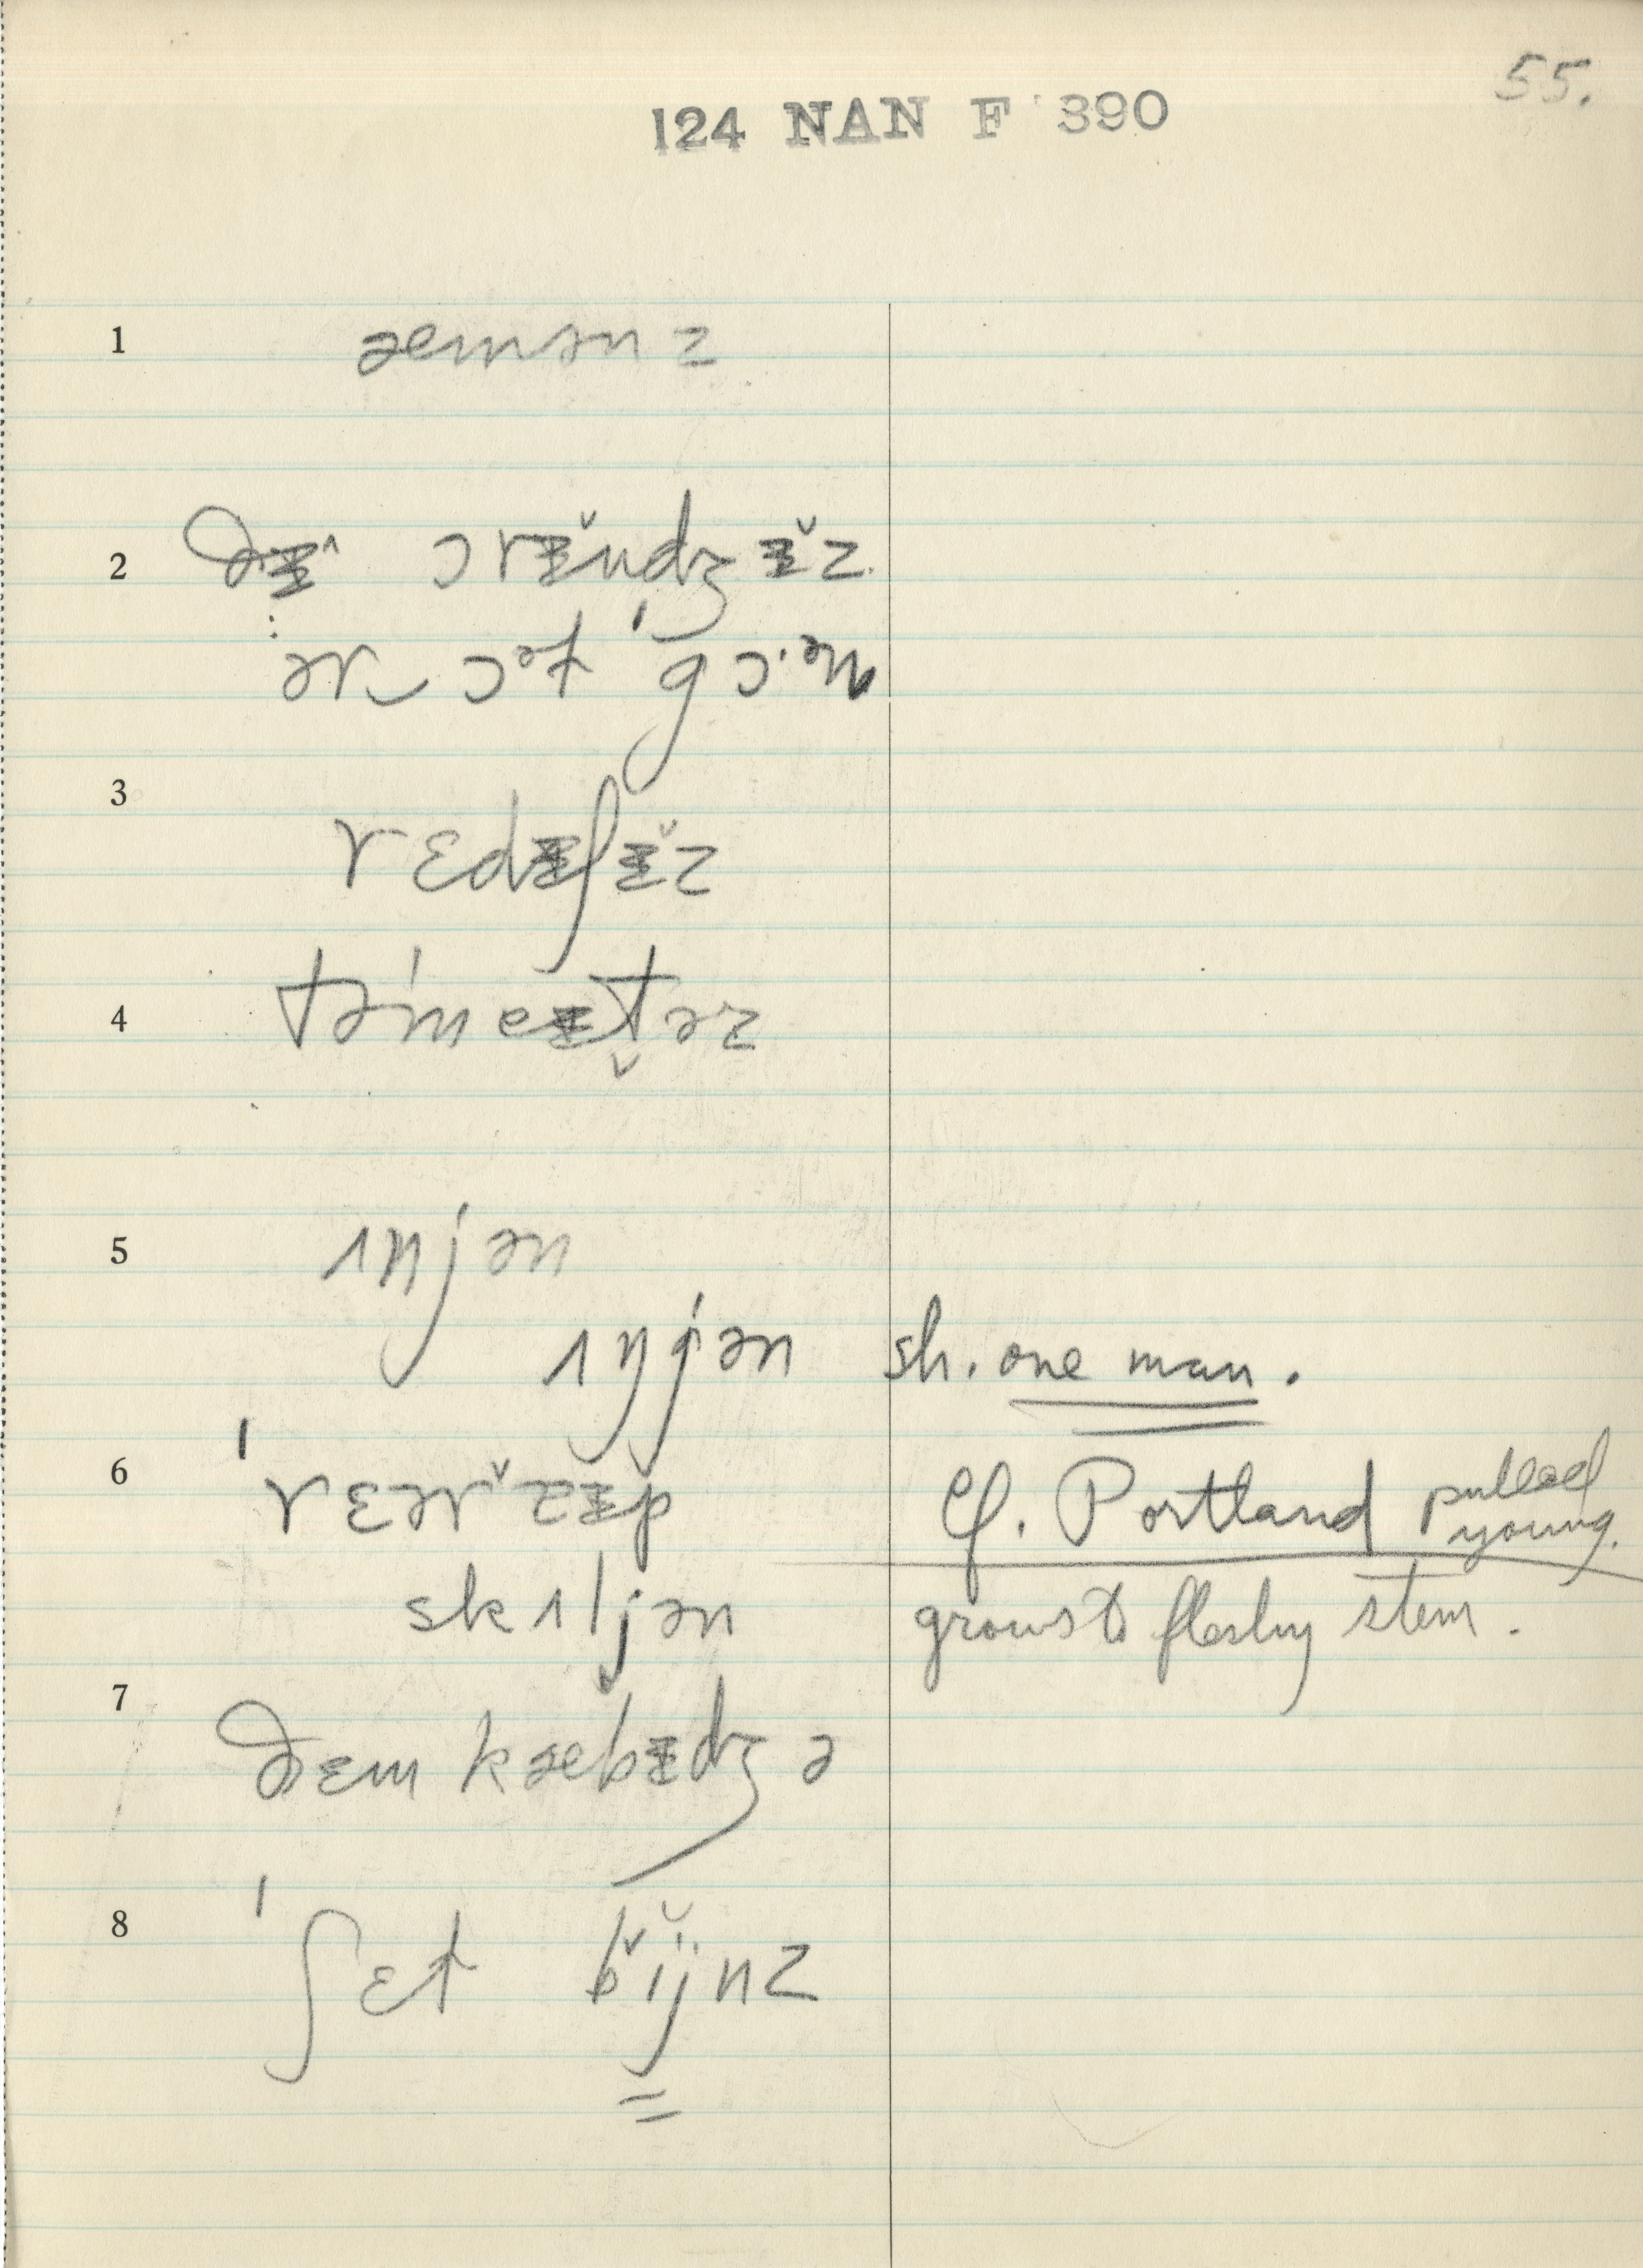 55.
124 NAN F 390
1 æmənz
2 ðɨ^ ɔrɨ̆ndʒɨ̆z
ər ɔᵊt 'gɔ.ᵊn
3 rɛdɨʃɨ̆z
4 tə'meɨt̬ərz
5 ɪnjən
ɪŋjən sh. one man.
6 'rɛərˇzɨp Cf. Portland pulled young.
skɪljən grows to fleshy stem.
7 ðɛm kæbɨdʒ ə
8 'ʃɛt bˇɪjnz